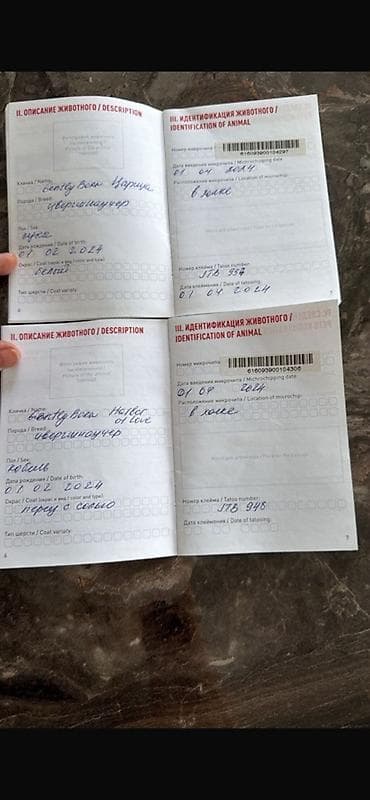 II. ОПИСАНИЕ ЖИВОТНОГО / DESCRIPTION
Кличка / Name:
Gently Born Царица
Порода / Breed:
цвергшнауцер
Пол / Sex:
сука
Дата рождения / Date of birth:
01 02 2024
Окрас / Coat (окрас и вид / color and type):
белый
Тип шерсти / Coat variety:
6
III. ИДЕНТИФИКАЦИЯ ЖИВОТНОГО /
IDENTIFICATION OF ANIMAL
Номер микрочипа
616093900104297
Дата введения микрочипа / Microchipping date:
01 04 2024
Расположение микрочипа / Location of microchip:
в холке
Номер клейма / Tatoo number:
Дата клеймения / Date of tatooing:
01 04 2024
7
II. ОПИСАНИЕ ЖИВОТНОГО / DESCRIPTION
Кличка / Name:
Gently Born Harbor
of Love
Порода / Breed:
цвергшнауцер
Пол / Sex:
кобель
Дата рождения / Date of birth:
01 02 2024
Окрас / Coat (окрас и вид / color and type):
перец с солью
Тип шерсти / Coat variety:
6
III. ИДЕНТИФИКАЦИЯ ЖИВОТНОГО /
IDENTIFICATION OF ANIMAL
Номер микрочипа
616093900104306
Дата введения микрочипа / Microchipping date:
01 04 2024
Расположение микрочипа / Location of microchip:
в холке
Номер клейма / Tatoo number:
Дата клеймения / Date of tatooing:
7